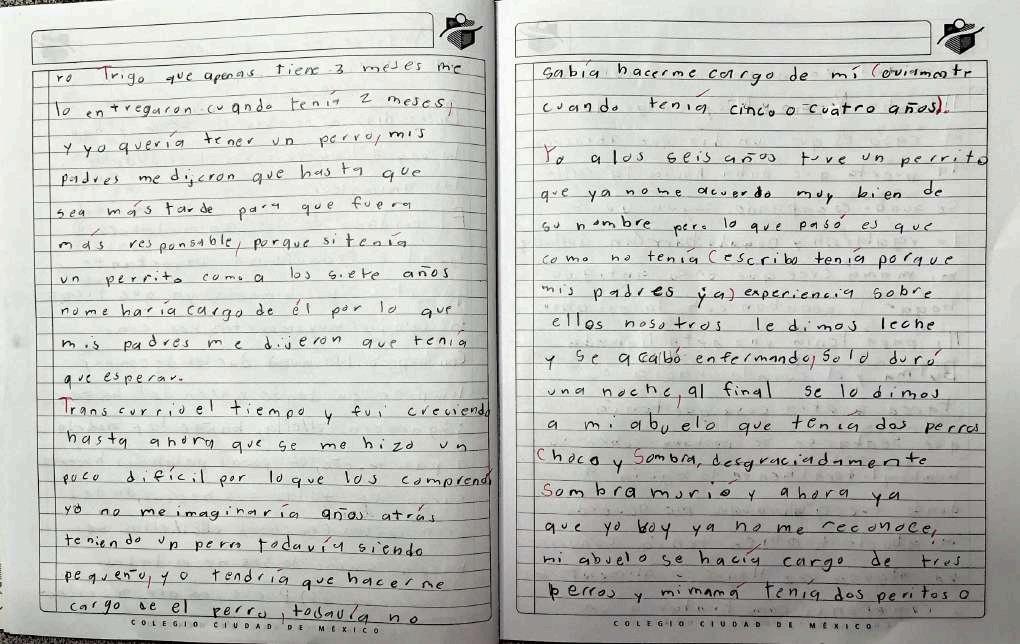 ro Trigo que apenas tiene 3 meses me
lo entregaron cuando tenía 2 meses,
y yo quería tener un perro, mis
padres me dijeron que hasta que
sea más tarde para que fuera
más responsable, porque si tenía
un perrito como a los siete años
no me haría cargo de él por lo que
mis padres me dijeron que tenía
que esperar.
Transcurrio el tiempo y fui creciendo
hasta ahora que se me hizo un
poco difícil por lo que los comprendí
yo no me imaginaría años atrás
teniendo un perro todavía siendo
pequeño, yo tendría que hacerme
cargo de el perro, todavía no
COLEGIO CIUDAD DE MÉXICO
sabía hacerme cargo de mí (oviamente
cuando tenía cinco o cuatro años).
Yo a los seis años tuve un perrito
que ya no me acuerdo muy bien de
su nombre pero lo que pasó es que
como no tenía (escribo tenía porque
mis padres ya) experiencia sobre
ellos nosotros le dimos leche
y se acabó enfermando, solo duró
una noche, al final se lo dimos
a mi abuelo que tenía dos perros
Choco y Sombra, desgraciadamente
Sombra murió y ahora ya
que yo boy ya no me reconoce,
mi abuelo se hacía cargo de tres
perros y mi mamá tenía dos peritos o
COLEGIO CIUDAD DE MÉXICO